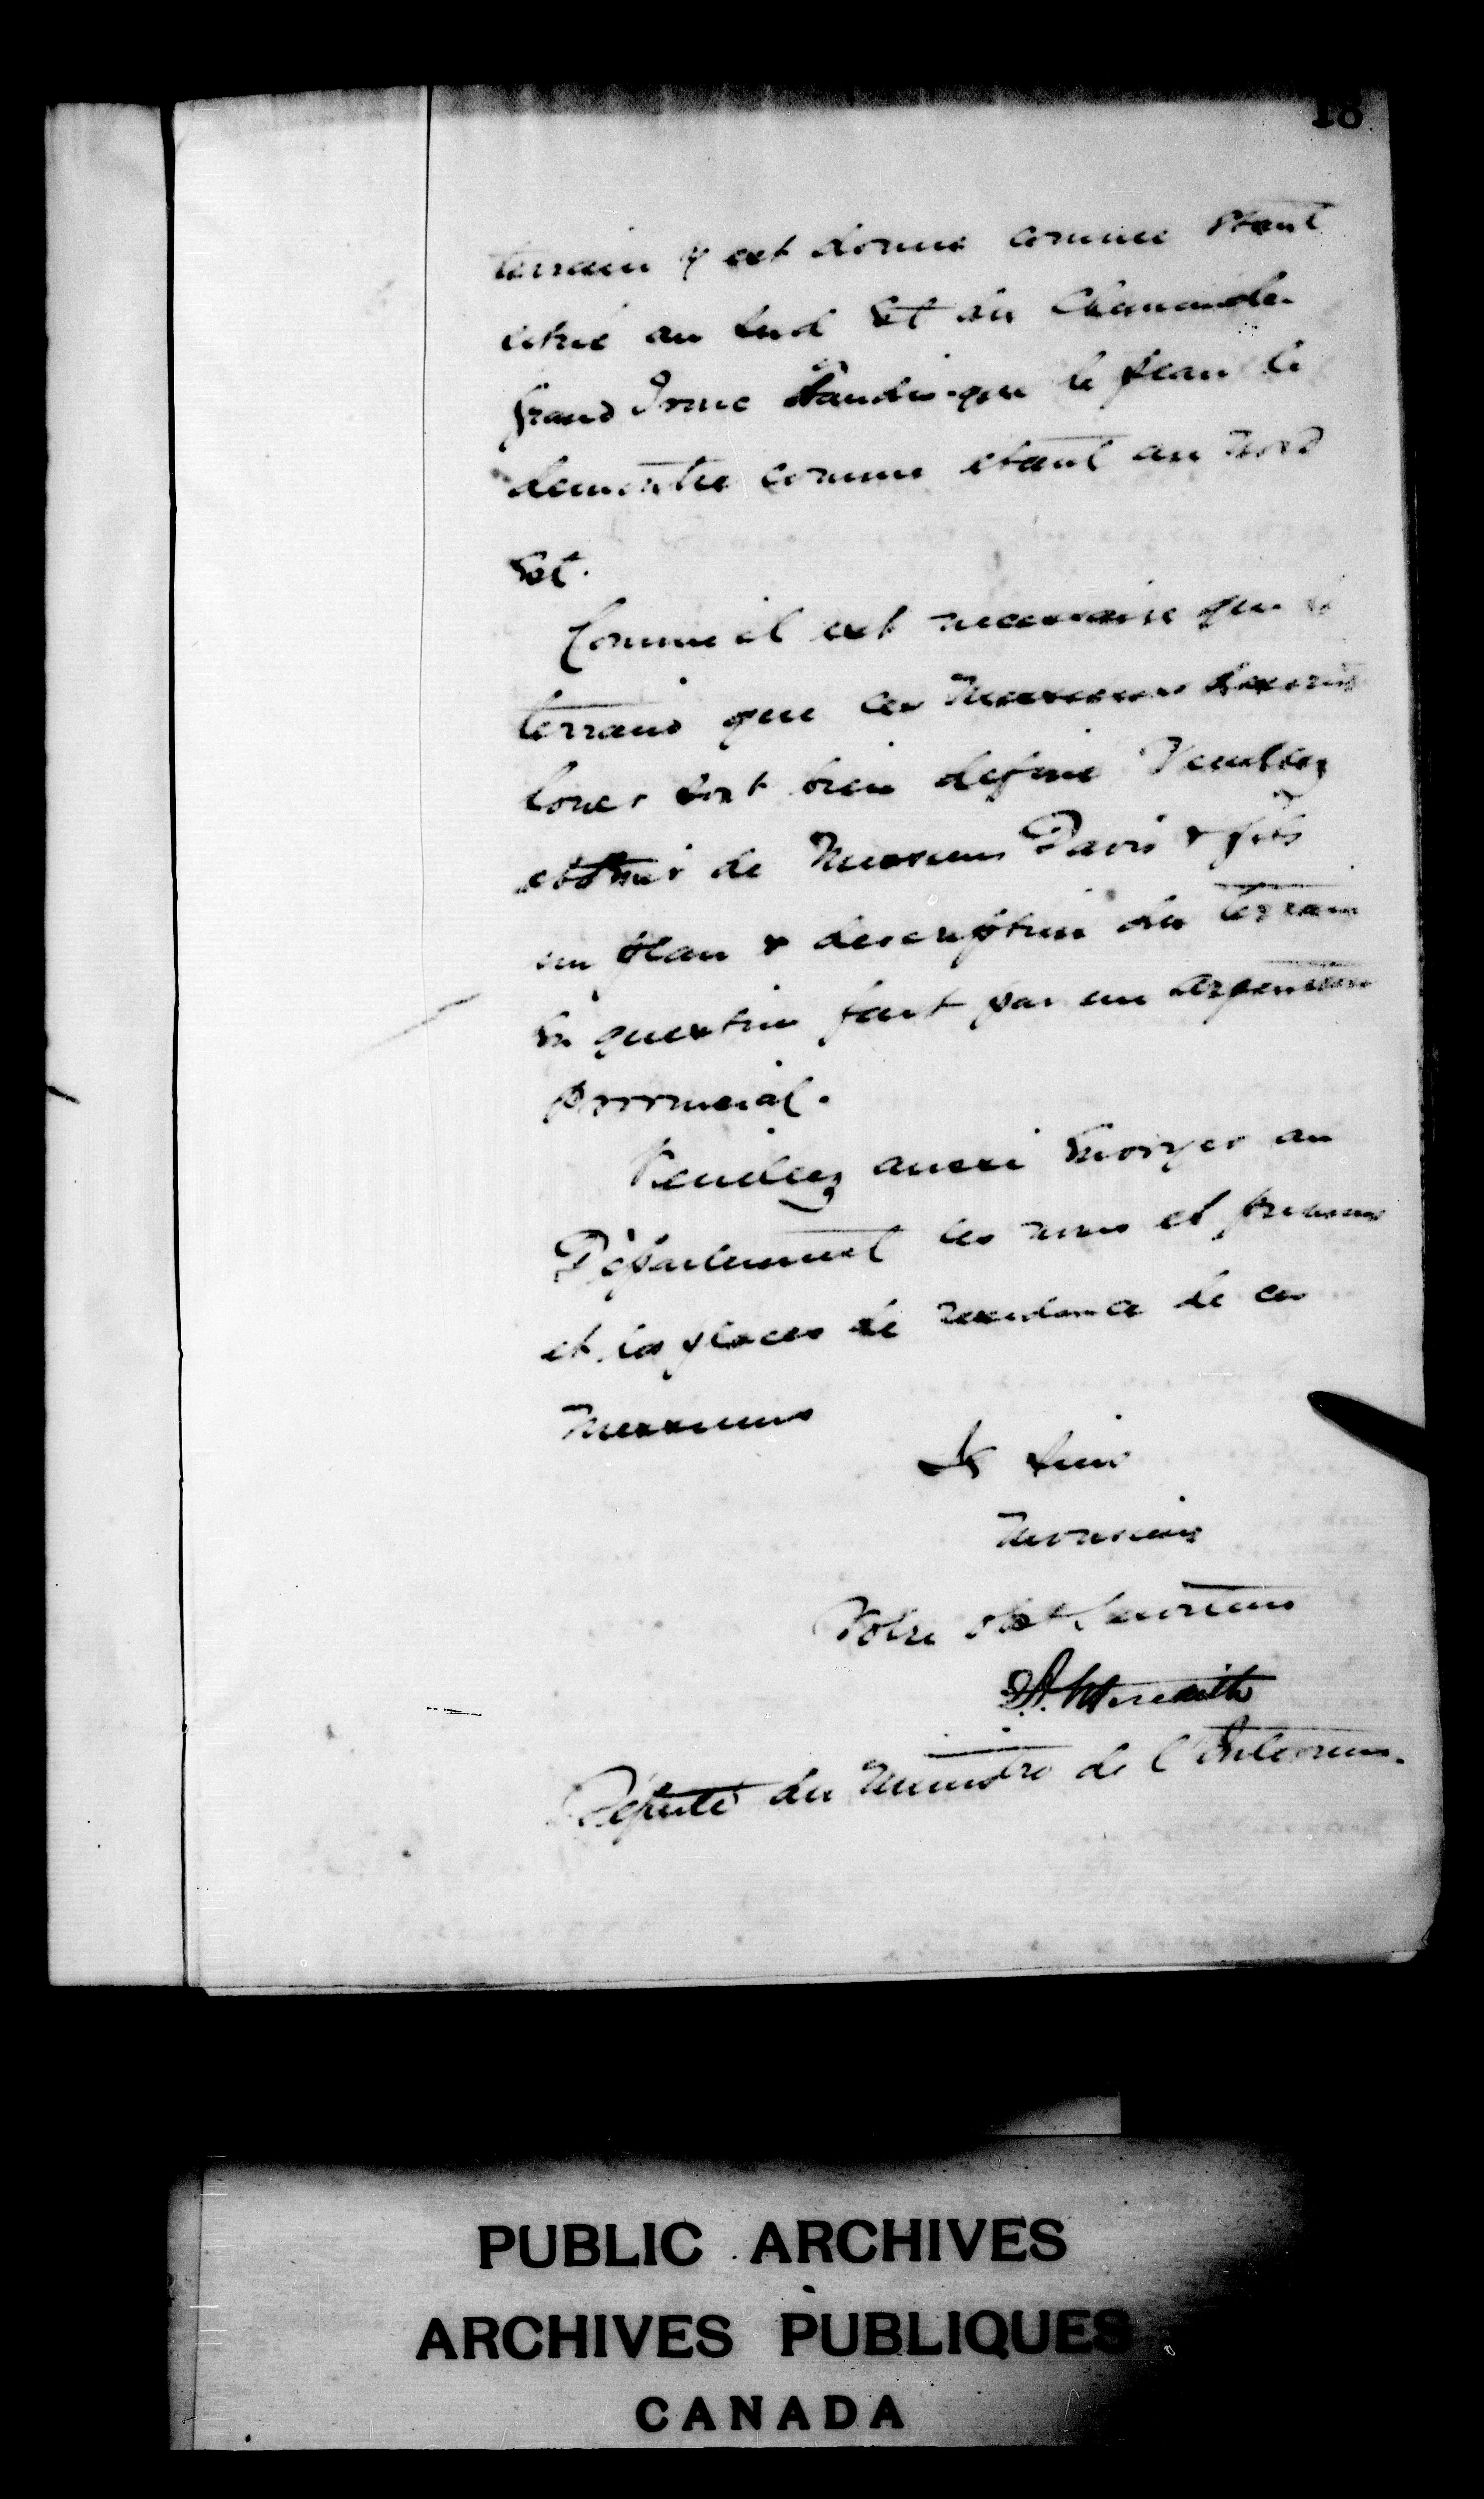 18
terrain y est donné comme étant
situé au Sud Est du Chemin de
Grand Tronc tandis que le plan le
demontre comme étant au nord
Est.
Comme il est necessaire que le
terrain que ces Messieurs desirent
louer soit bien define Veuillez
obtenir de Messieurs Davis & fils
un plan & description du terrain
En question fait par un arpenteur
provincial.
Veuillez aussi Envoyer au
Département les noms et prenoms
et les places de residence de ces
Messieurs
Je suis
Monsieur
Votre obt Serviteur
Meredith
Député du Ministre de l'Interieur.
PUBLIC ARCHIVES
ARCHIVES PUBLIQUES
CANADA